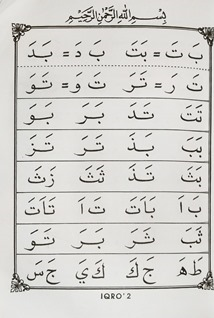 بِسْمِ اللهِ الرَّحْمٰنِ الرَّحِيْمِ
بَ تَ = بَتَ بَ دَ = بَدَ
تَ رَ = تَرَ تَ وَ = تَوَ
تَتَ تَدَ بَرَ بَوَ
بَبَ بَذَ تَرَ تَزَ
بَثَ تَذَ ثَثَ زَثَ
بَ اَ بَأَتَ تَ اَ تَأَتَ
ثَبَ ثَرَ بَرَ تَوَ
طَ هَ جَ كَ كَ يَ جَ سَ
IQRO' 2